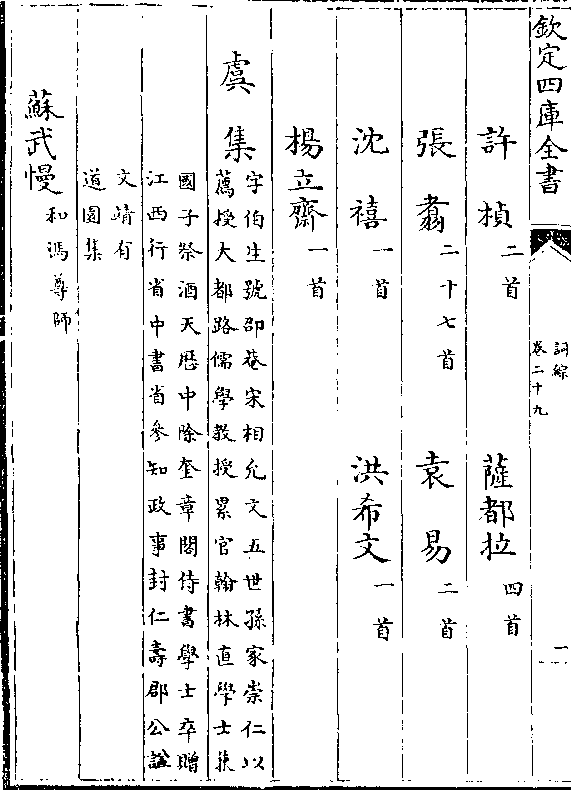 欽定四庫全書
詞綜
卷二十九
一
許楨二首　薩都拉四首
張翥二十七首　袁易二首
沈禧一首　洪希文一首
楊立齋一首
虞集
字伯生號邵菴宋相允文五世孫家崇仁以
薦授大都路儒學教授累官翰林直學士兼
國子祭酒天歷中除奎章閣侍書學士卒贈
江西行省中書省參知政事封仁壽郡公諡
文靖有
道園集
蘇武慢
和馮尊師